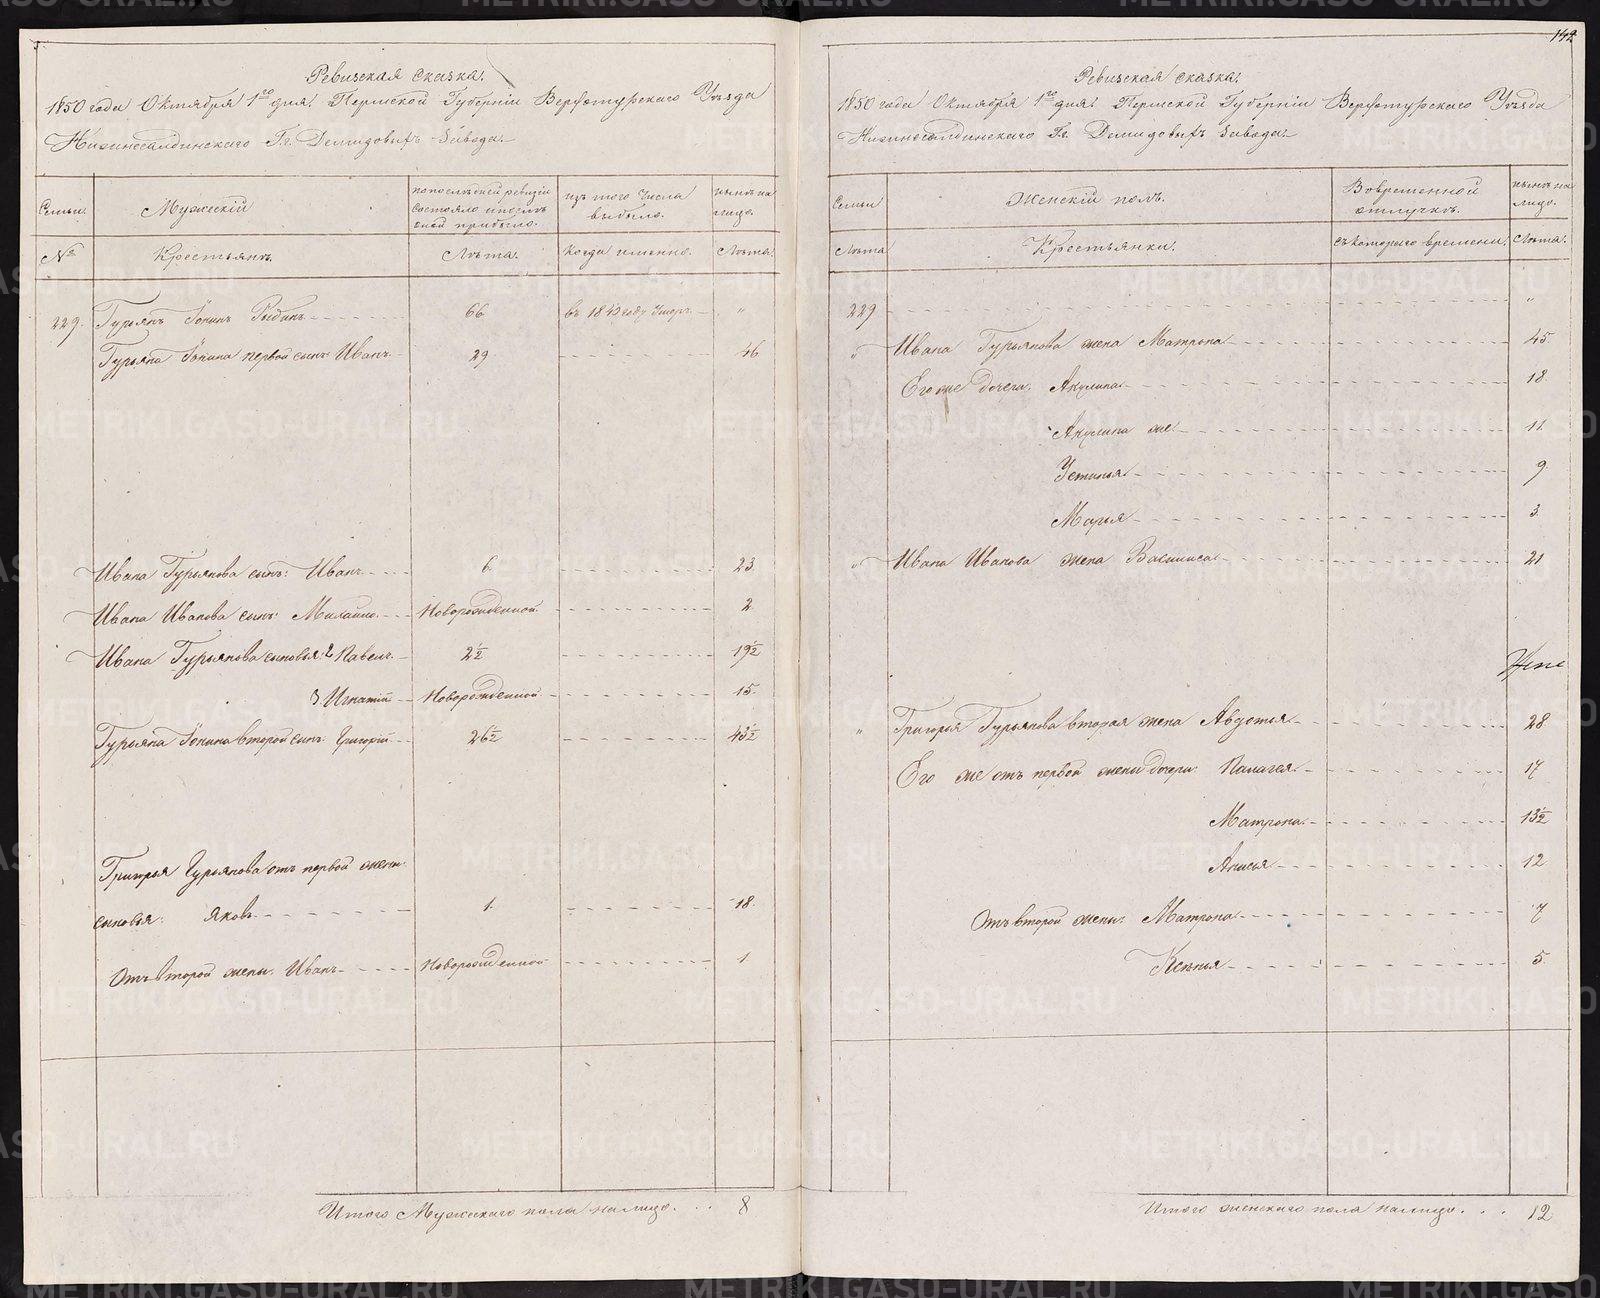 Ревизская сказка.
1850 года Октября 1го дня. Пермской Губернiи Верхотурскаго Уѣзда
Нижнесалдинскаго Гг. Демидовыхъ Завода.
Семьи. Мужескiй по послѣдней ревизiи состояло и послѣ оной прибыло. изъ того числа выбыло. нынѣ на лицо.
№ Крестьянъ. Лѣта. Когда именно. Лѣта.
229. Гурьянъ Iонинъ Рыбинъ 66 въ 1843 году Умеръ "
Гурьяна Iонина первой сынъ Иванъ 29 46
Ивана Гурьянова сынъ: Иванъ 6. 23.
Ивана Иванова сынъ: Михайло Новорожденной 2
Ивана Гурьянова сыновья: 2 Павелъ 2½ 19½
3. Игнатiй Новорожденной 15.
Гурьяна Iонина второй сынъ: Григорiй 26½ 43½
Григорья Гурьянова отъ первой жены
сыновья: Яковъ 1. 18.
Отъ второй жены: Иванъ Новорожденной 1
Итого Мужескаго пола на лицо. 8
142
Ревизская сказка.
1850 года Октября 1го дня. Пермской Губернiи Верхотурскаго Уѣзда
Нижнесалдинскаго Гг. Демидовыхъ Завода.
Семьи Женскiй полъ. Во временной отлучкѣ. нынѣ на лицо.
Лѣта Крестьянки. съ котораго времени. Лѣта.
229 "
" Ивана Гурьянова жена Матрона 45.
Его же дочери: Акулина 18.
Акулина же 11.
Устинья 9.
Марья 3.
" Ивана Иванова жена Василиса 21
" Григорья Гурьянова вторая жена Августья 28
Его же отъ первой жены дочери: Палагея 17
Матрона 13½
Анисья 12
Отъ второй жены: Матрона 7
Ксенья 5.
Итого женскаго пола на лицо. 12
METRIKI.GASO-URAL.RU